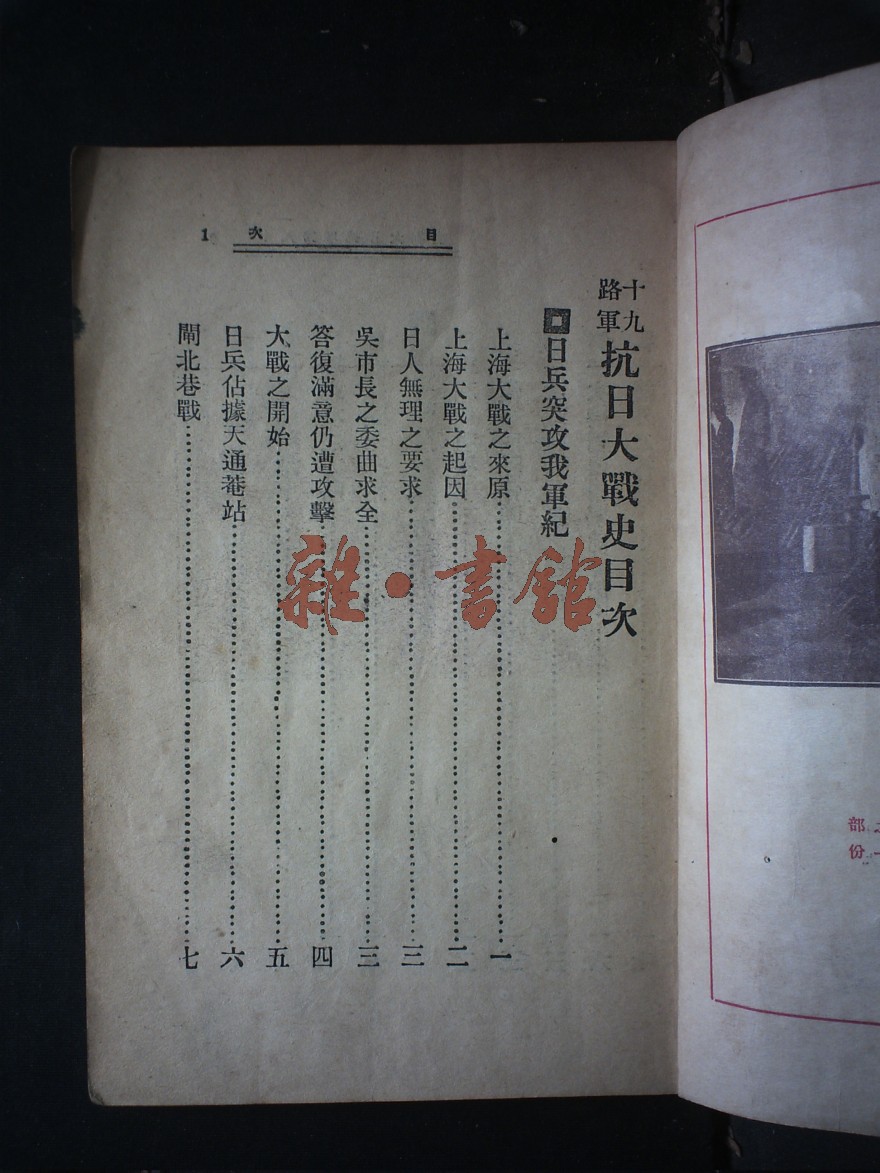 目次 1
十九路軍抗日大戰史目次
▣日兵突攻我軍紀
上海大戰之來原……一
上海大戰之起因……二
日人無理之要求……三
吳市長之委曲求全……三
答復滿意仍遭攻擊……四
大戰之開始……五
日兵佔據天通菴站……六
閘北巷戰……七
雜·書館
部
份一